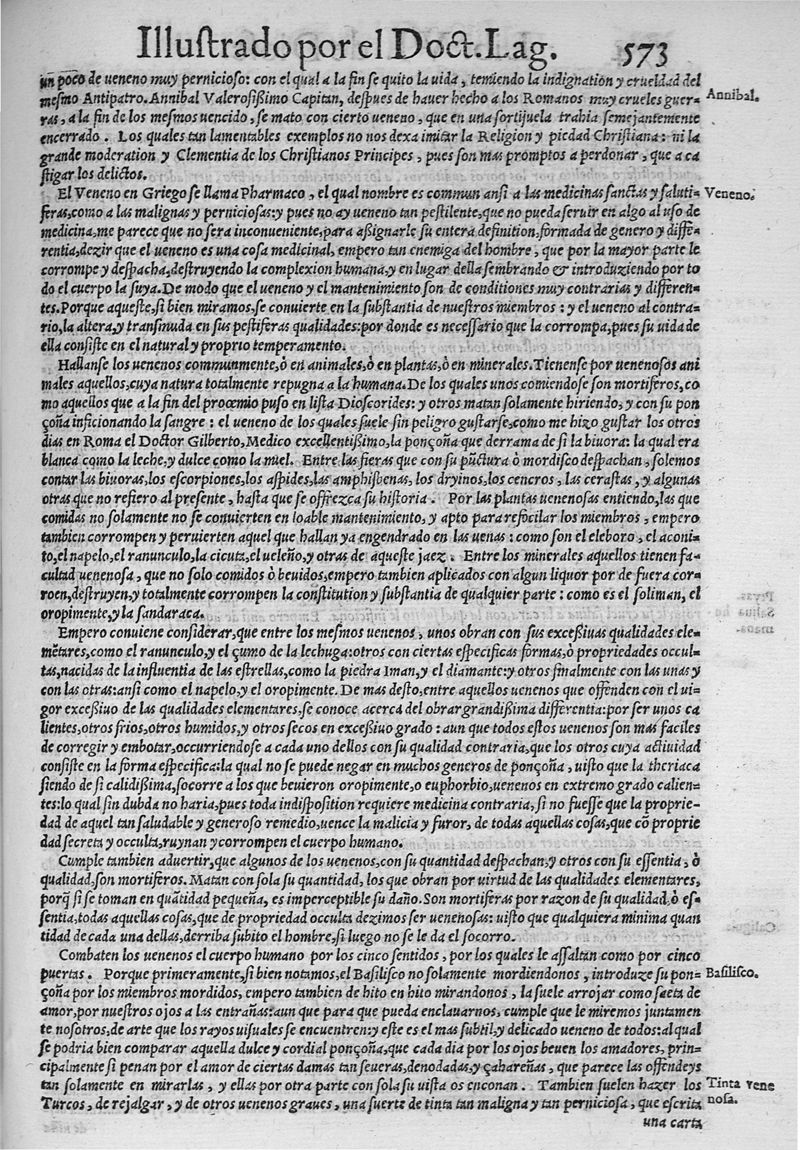 Illustrado por el Doct. Lag. 573
un poco de ueneno muy pernicioso: con el qual a la fin se quito la uida, temiendo la indignation y crueldad del
mesmo Antipatro. Annibal Valerosißimo Capitan, despues de hauer hecho a los Romanos muy crueles guer-
ras, a la fin de los mesmos uencido, se mato con cierto ueneno, que en una sortijuela trahia semejantemente
encerrado. Los quales tan lamentables exemplos no nos dexa imitar la Religion y piedad Christiana: ni la
grande moderation y Clementia de los Christianos Principes, pues son mas promptos a perdonar, que a ca
stigar los delictos.
Annibal.
El Veneno en Griego se llama Pharmaco, el qual nombre es commun ansi a las medicinas sanctas y saluti-
feras, como a las malignas y perniciosas: y pues no ay ueneno tan pestilente, que no pueda seruir en algo al uso de
medicina, me parece que no sera inconueniente, para aßignarle su entera definition, formada de genero y diffe-
rentia, dezir que el ueneno es una cosa medicinal, empero tan enemiga del hombre, que por la mayor parte le
corrompe y despacha, destruyendo la complexion humana, y en lugar della sembrando & introduziendo por to
do el cuerpo la suya. De modo que el ueneno y el mantenimiento son de conditiones muy contrarias y differen-
tes. Porque aqueste, si bien miramos, se conuierte en la substantia de nuestros miembros: y el ueneno al contra-
rio, la altera, y transmuda en sus pestiferas qualidades: por donde es necessario que la corrompa, pues su uida de
ella consiste en el natural y proprio temperamento.
Veneno.
Hallanse los uenenos communmente, ò en animales, ò en plantas, ò en minerales. Tienense por uenenosos ani
males aquellos, cuya natura totalmente repugna a la humana. De los quales unos comiendose son mortiferos, co
mo aquellos que a la fin del proœmio puso en lista Dioscorides: y otros matan solamente hiriendo, y con su pon
çoña inficionando la sangre: el ueneno de los quales suele sin peligro gustarse, como me hizo gustar los otros
dias en Roma el Doctor Gilberto, Medico excellentißimo, la ponçoña que derrama de si la biuora: la qual era
blanca como la leche, y dulce como la miel. Entre las fieras que con su pũctura ò mordisco despachan, solemos
contar las biuoras, los escorpiones, los aspides, las amphisbenas, los dryinos, los cencros, las cerastas, y algunas
otras que no refiero al presente, hasta que se offrezca su historia. Por las plantas uenenosas entiendo, las que
comidas no solamente no se conuierten en loable mantenimiento, y apto para refocilar los miembros, empero
tambien corrompen y peruierten aquel que hallan ya engendrado en las uenas: como son el eleboro, el aconi-
to, el napelo, el ranunculo, la cicuta, el ueleño, y otras de aqueste jaez. Entre los minerales aquellos tienen fa-
cultad uenenosa, que no solo comidos ò beuidos, empero tambien aplicados con algun liquor por de fuera cor-
roen, destruyen, y totalmente corrompen la constitution y substantia de qualquier parte: como es el soliman, el
oropimente, y la sandaraca.
Empero conuiene considerar, que entre los mesmos uenenos, unos obran con sus exceßiuas qualidades ele-
mẽtares, como el ranunculo, y el çumo de la lechuga: otros con ciertas especificas formas, ò propriedades occul-
tas, nacidas de la influentia de las estrellas, como la piedra Iman, y el diamante: y otros finalmente con las unas y
con las otras: ansi como el napelo, y el oropimente. De mas desto, entre aquellos uenenos que offenden con el ui-
gor exceßiuo de las qualidades elementares, se conoce acerca del obrar grandißima differentia: por ser unos ca
lientes, otros frios, otros humidos, y otros secos en exceßiuo grado: aun que todos estos uenenos son mas faciles
de corregir y embotar, occurriendose a cada uno dellos con su qualidad contraria, que los otros cuya actiuidad
consiste en la forma especifica: la qual no se puede negar en muchos generos de ponçoña, uisto que la theriaca
siendo de si calidißima, socorre a los que beuieron oropimente, o euphorbio, uenenos en extremo grado calien-
tes: lo qual sin dubda no haria, pues toda indisposition requiere medicina contraria, si no fuesse que la proprie-
dad de aquel tan saludable y generoso remedio, uence la malicia y furor, de todas aquellas cosas, que cõ proprie
dad secreta y occulta, ruynan y corrompen el cuerpo humano.
Cumple tambien aduertir, que algunos de los uenenos, con su quantidad despachan, y otros con su essentia, ò
qualidad, son mortiferos. Matan con sola su quantidad, los que obran por uirtud de las qualidades elementares,
porq̃ si se toman en quãtidad pequeña, es imperceptible su daño. Son mortiferas por razon de su qualidad, ò es-
sentia, todas aquellas cosas, que de propriedad occulta dezimos ser uenenosas: uisto que qualquiera minima quan
tidad de cada una dellas, derriba subito el hombre, si luego no se le da el socorro.
Combaten los uenenos el cuerpo humano por los cinco sentidos, por los quales le assaltan como por cinco
puertas. Porque primeramente, si bien notamos, el Basilisco no solamente mordiendonos, introduze su pon-
çoña por los miembros mordidos, empero tambien de hito en hito mirandonos, la suele arrojar como saeta de
amor, por nuestros ojos a las entrañas: aun que para que pueda enclauarnos, cumple que le miremos juntamen
te nosotros, de arte que los rayos uisuales se encuentren: y este es el mas subtil, y delicado ueneno de todos: al qual
se podria bien comparar aquella dulce y cordial ponçoña, que cada dia por los ojos beuen los amadores, prin-
cipalmente si penan por el amor de ciertas damas tan seueras, denodadas, y çahareñas, que parece las offendeys
tan solamente en mirarlas, y ellas por otra parte con sola su uista os enconan. Tambien suelen hazer los
Turcos, de rejalgar, y de otros uenenos graues, una suerte de tinta tan maligna y tan perniciosa, que escrita
Basilisco.
Tinta vene
nosa.
una carta